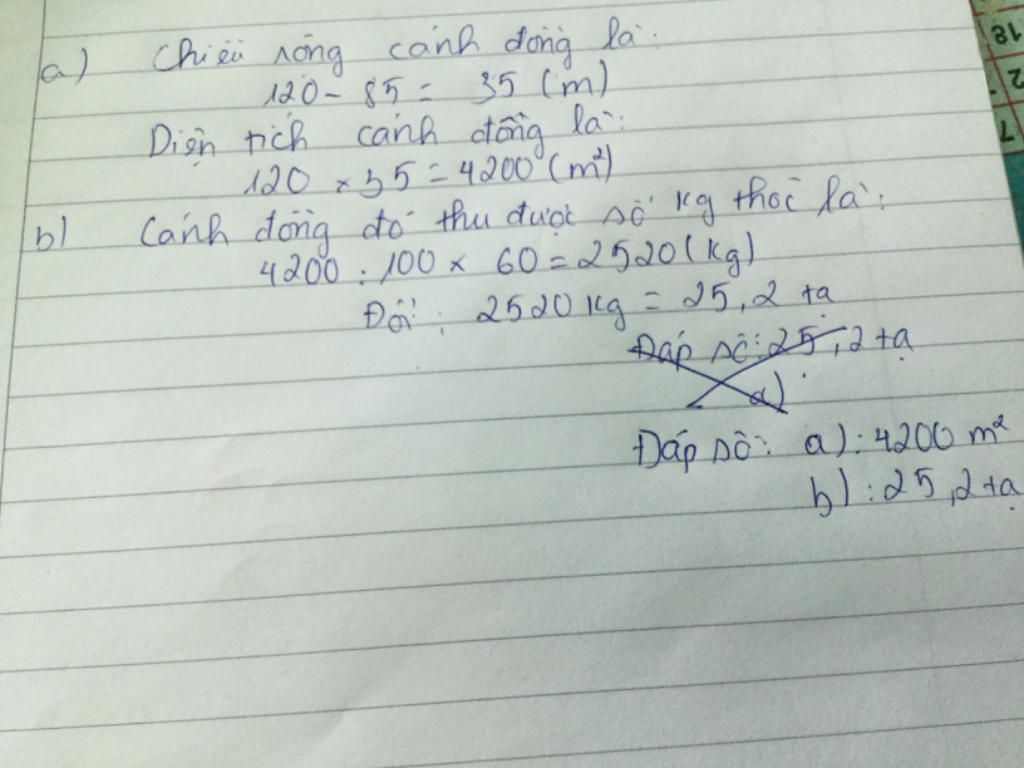 a) Chiều rộng cánh đồng là:
120 - 85 = 35 (m)
Diện tích cánh đồng là:
120 x 35 = 4200 (m²)
b) Cánh đồng đó thu được số kg thóc là:
4200 : 100 x 60 = 2520 (kg)
Đổi: 2520 kg = 25,2 tạ
Đáp số: 25,2 tạ
a)
Đáp số: a): 4200 m²
b): 25,2 tạ
18
2
7